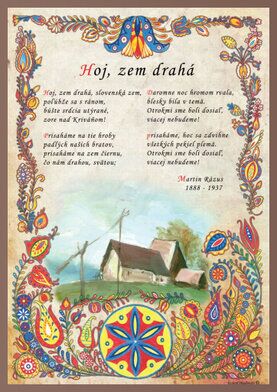 Hoj, zem drahá
Hoj, zem drahá, slovenská zem,
poľúbže sa s ránom,
búšte srdcia utýrané,
zore nad Kriváňom!
Prisaháme na tie hroby
padlých našich bratov,
prisaháme na zem čiernu,
čo nám drahou, svätou;
Daromne noc hromom rvala,
blesky bila v temä.
Otrokmi sme boli dosiaľ,
viacej nebudeme!
prisaháme, hoc sa zdvihne
všetkých pekiel plemä.
Otrokmi sme boli dosiaľ,
viacej nebudeme!
Martin Rázus
1888 - 1937